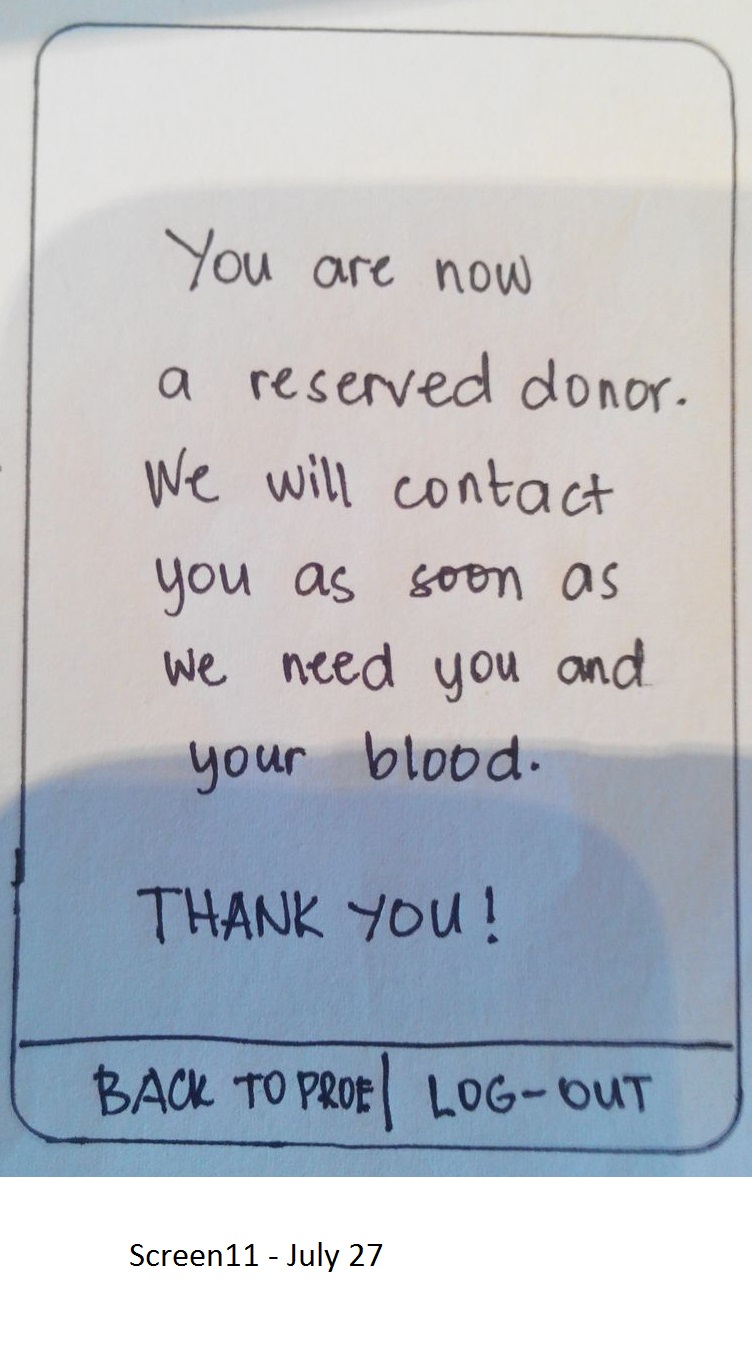 You are now
a reserved donor.
We will contact
you as soon as
we need you and
your blood.
THANK YOU!
BACK TO PROF | LOG-OUT
Screen11 - July 27